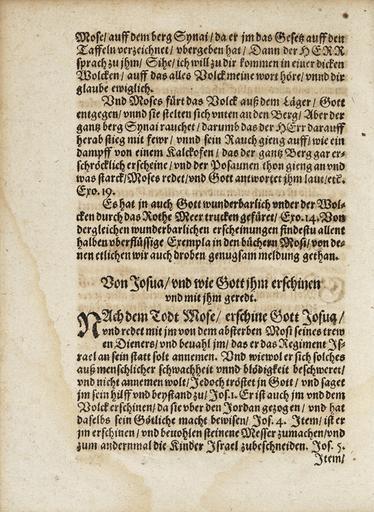 Mose/ auff dem berg Synai/ da er jm das Gesetz auff den
Taffeln verzeichnet/ vbergeben hat/ Dann der HERR
sprach zu jhm/ Sihe/ ich will zu dir kommen in einer dicken
Wolcken/ auff das alles Volck meine wort höre/ vnnd dir
glaube ewiglich.
Vnd Moses fürt das Volck auß dem Läger/ Gott
entgegen/ vnnd sie stelten sich vnten an den Berg/ Aber der
gantz berg Synai rauchet/ darumb das der HErr darauff
herab stieg mit fewr/ vnnd sein Rauch gieng auff/ wie ein
dampff von einem Kalckofen/ das der gantz Berg gar er-
schröcklich erscheine/ vnd der Posaunen thon gieng an vnd
was starck/ Moses redet/ vnd Gott antwortet jhm laut/ etc.
Exo. 19.
Es hat in auch Gott wunderbarlich vnder der Wol-
cken durch das Rothe Meer trucken gefüret/ Exo. 14. Von
dergleichen wunderbarlichen erscheinungen findestu allent
halben vberflüssige Exempla in den büchern Mosi/ von de-
nen etlichen wir auch droben genugsam meldung gethan.
Von Josua/ vnd wie Gott jhm erschinen
vnd mit jhm geredt.
NAch dem Todt Mose/ erschine Gott Josua/
vnd redet mit jm von dem absterben Mosi seines trew
en Dieners/ vnd beualh jm/ das er das Regiment Iß-
rael an sein statt solt annemen. Vnd wiewol er sich solches
auß menschlicher schwachheit vnnd blödigkeit beschweret/
vnd nicht annemen wolt/ Jedoch tröstet in Gott/ vnd saget
jm sein hilff vnd beystand zu/ Jos. 1. Er ist auch jm vnd dem
Volck erschinen/ da sie vber den Jordan gezogen/ vnd hat
daselbs sein Götliche macht bewisen/ Jos. 4. Item/ ist er
jm erschinen/ vnd beuohlen steinene Messer zumachen/ vnd
zum andernmal die Kinder Israel zubeschneiden. Jos. 5.
Item/